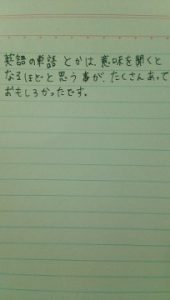 英語の単語とかは、意味を聞くと
なるほどと思う事が、たくさんあって
おもしろかったです。